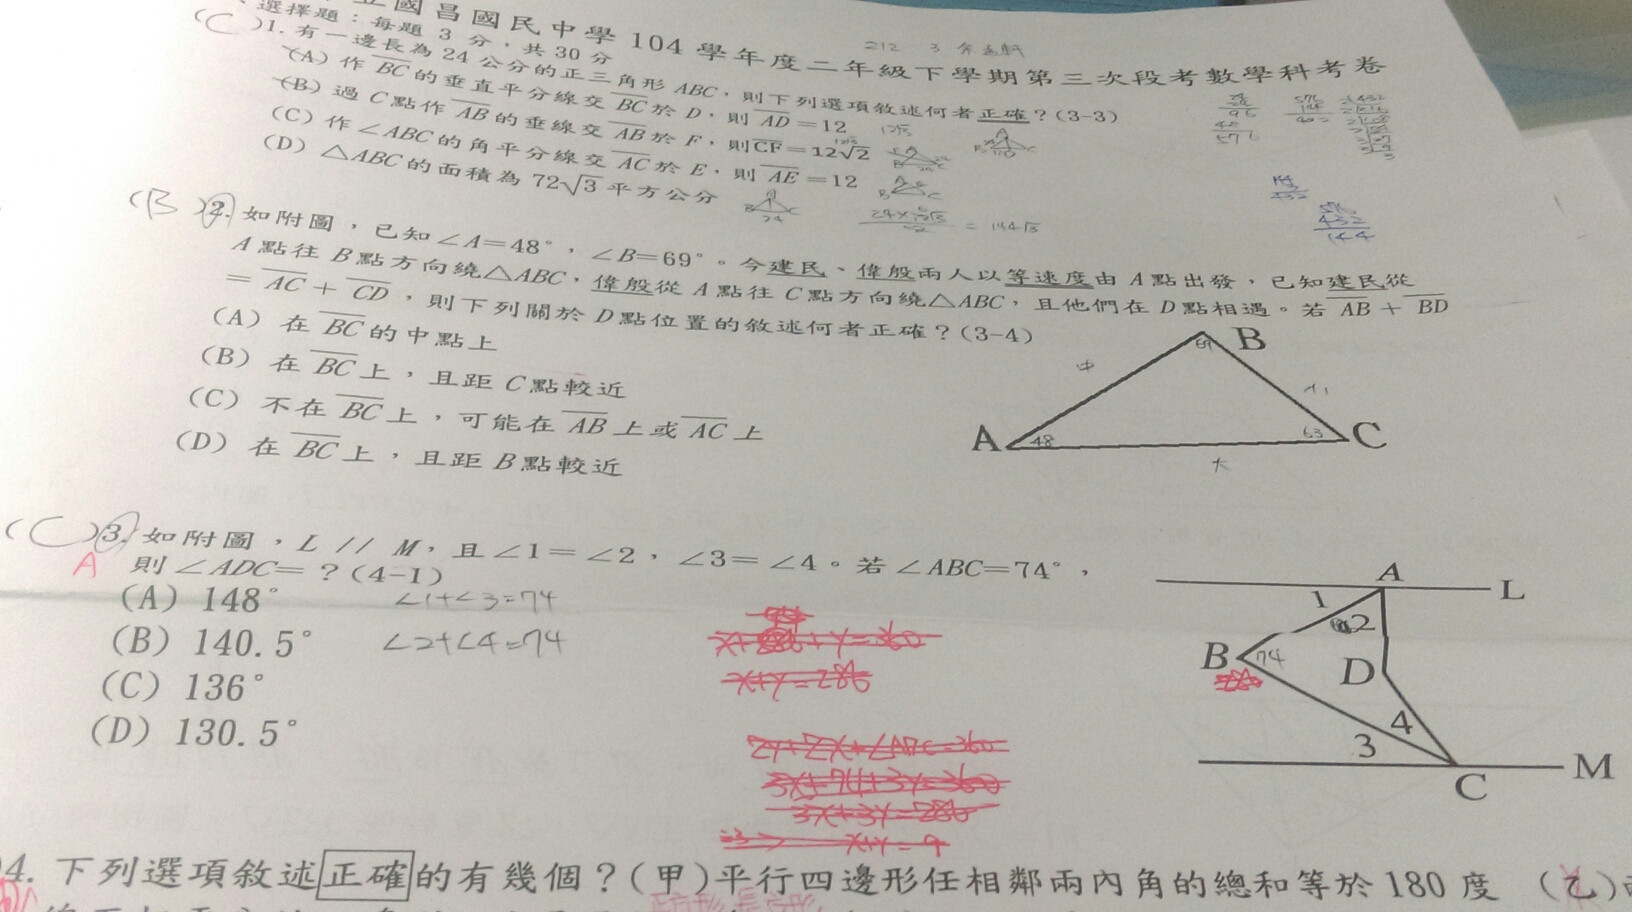 立國昌國民中學 104 學年度二年級下學期第三次段考數學科考卷
選擇題：每題 3 分，共 30 分
(C)1. 有一邊長為 24 公分的正三角形 ABC，則下列選項敘述何者正確？(3-3)
(A) 作 BC 的垂直平分線交 BC 於 D，則 AD=12
(B) 過 C 點作 AB 的垂線交 AB 於 F，則 CF=12√2
(C) 作∠ABC 的角平分線交 AC 於 E，則 AE=12
(D) △ABC 的面積為 72√3 平方公分
= 144√3
(B)2. 如附圖，已知∠A=48°，∠B=69°。今建民、偉殷兩人以等速度由 A 點出發，已知建民從
A 點往 B 點方向繞△ABC，偉殷從 A 點往 C 點方向繞△ABC，且他們在 D 點相遇。若 AB + BD
= AC + CD，則下列關於 D 點位置的敘述何者正確？(3-4)
(A) 在 BC 的中點上
(B) 在 BC 上，且距 C 點較近
(C) 不在 BC 上，可能在 AB 上或 AC 上
(D) 在 BC 上，且距 B 點較近
B
69
中
小
A
48
63
C
大
(C)3. 如附圖，L // M，且∠1=∠2，∠3=∠4。若∠ABC=74°，
A
則∠ADC=？(4-1)
(A) 148°
(B) 140.5°
(C) 136°
(D) 130.5°
∠1+∠3=74
∠2+∠4=74
x+y=286
3x+74+3y=360
3x+3y=286
A
L
1
2
B
74
D
4
3
C
M
4. 下列選項敘述正確的有幾個？(甲)平行四邊形任相鄰兩內角的總和等於 180 度 (乙)